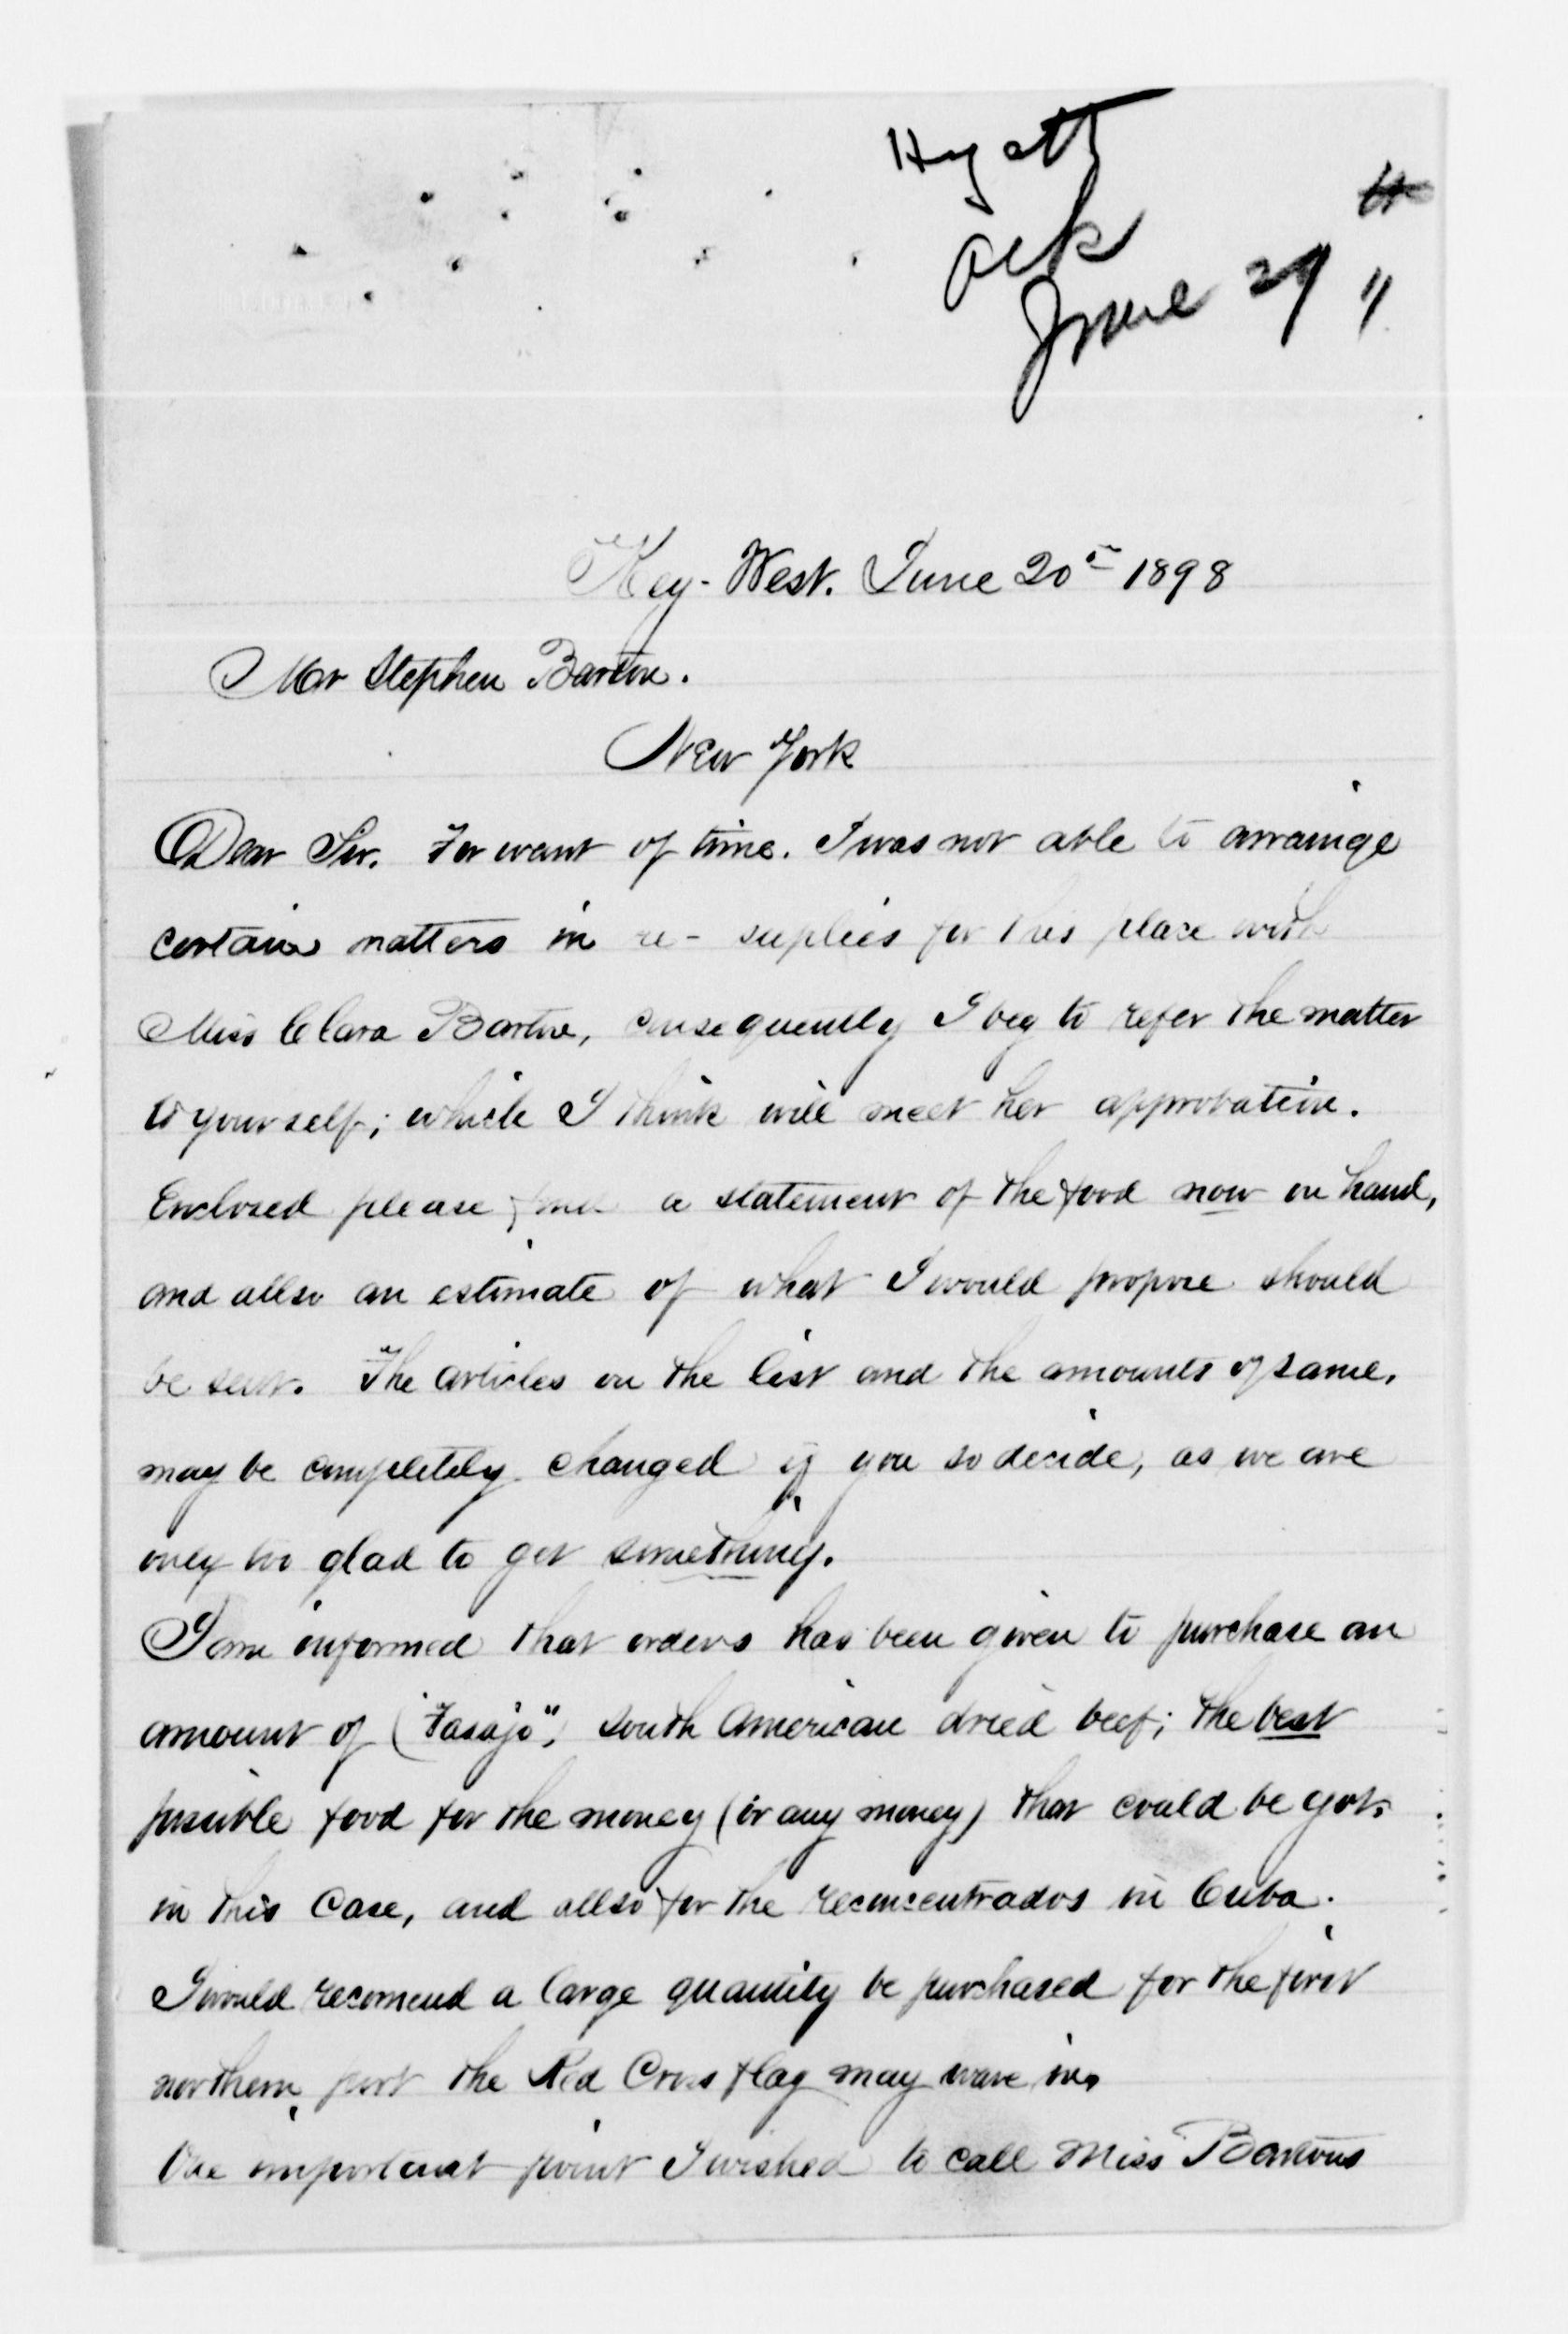 Hyatt
ack
June 29 "
Key-West. June 20th 1898
Mr Stephen Barton.
New York
Dear Sir. For want of time. I was not able to arrainge
certain matters in re- suplies for this place with
Miss Clara Barton, consequently I beg to refer the matter
to yourself; which I think will meet her approbation.
Enclosed please find a statement of the food now on hand,
and allso an estimate of what I would propose should
be sent. The articles on the list and the amounts of same,
may be completely changed if you so decide, as we are
only too glad to get something.
I am informed that orders has been given to purchase an
amount of ("Tasajo", South American dried beef; the best
possible food for the money (or any money) that could be got.
in this Case, and allso for the reconcentrados in Cuba.
I would recomend a large quantity be purchased for the first
northern port the Red Cross flag may wave in.
One important point I wished to call Miss Bartons